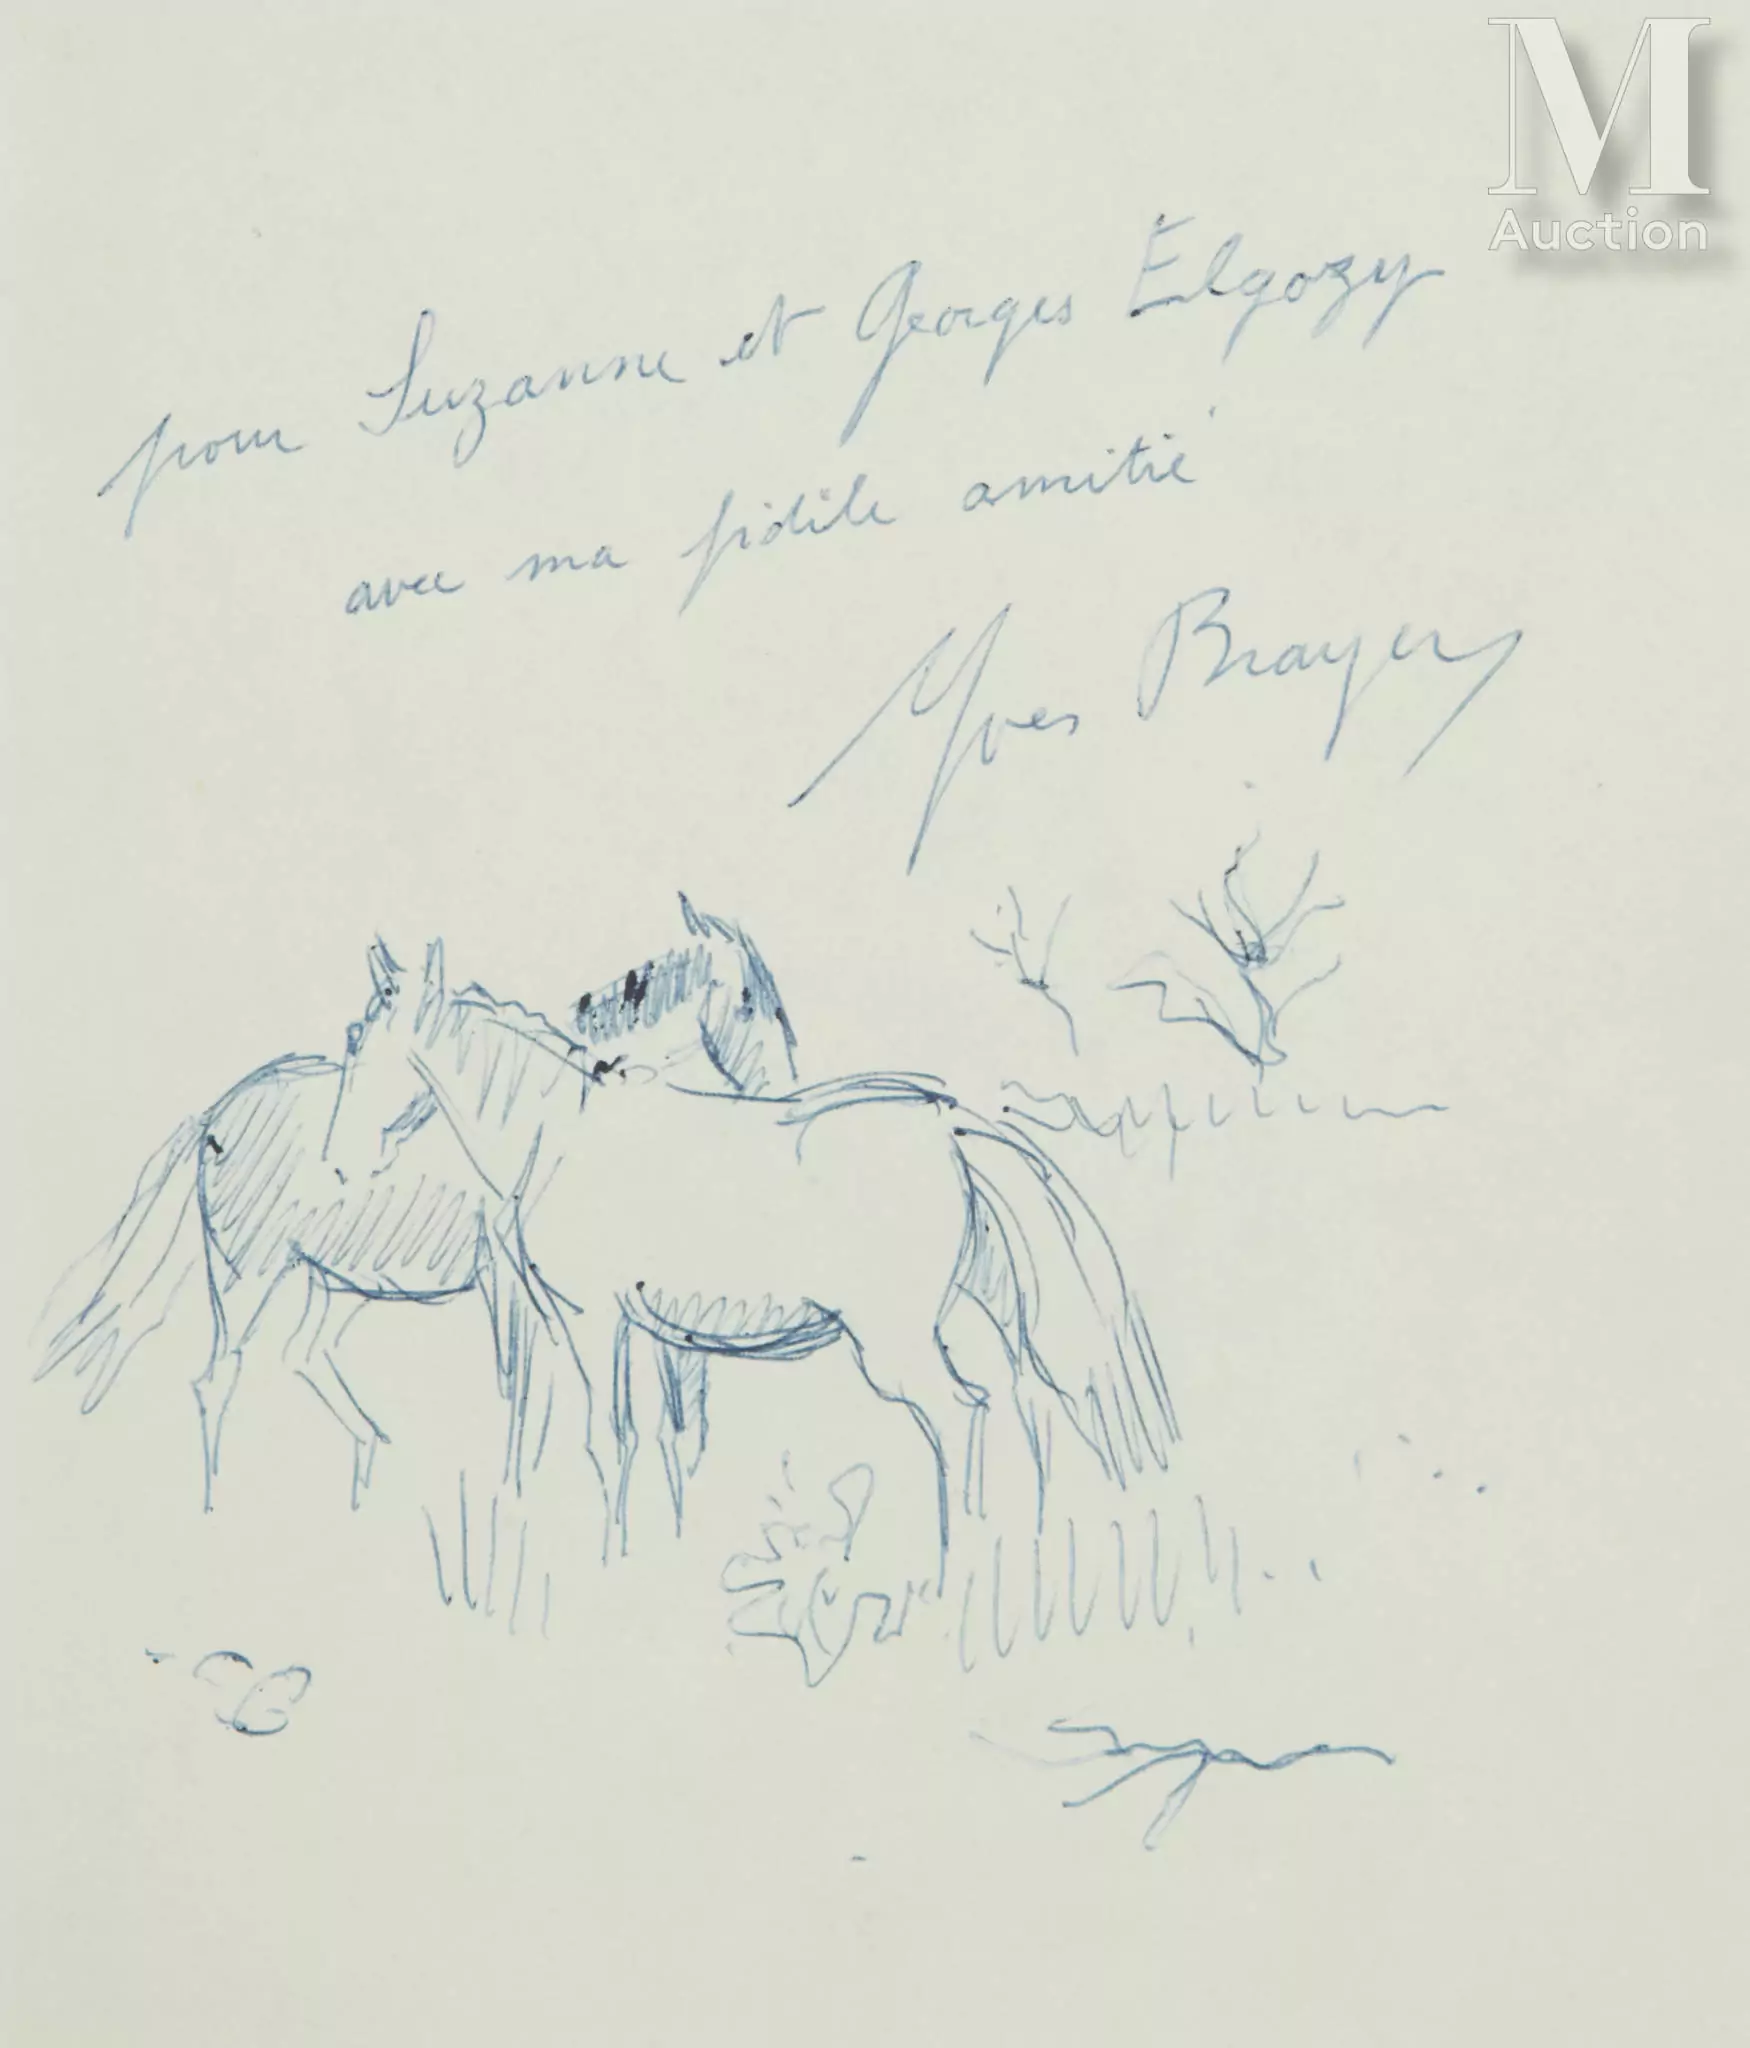 M
Auction
pour Suzanne et Georges Elgozy
avec ma fidèle amitié
Yves Brayer